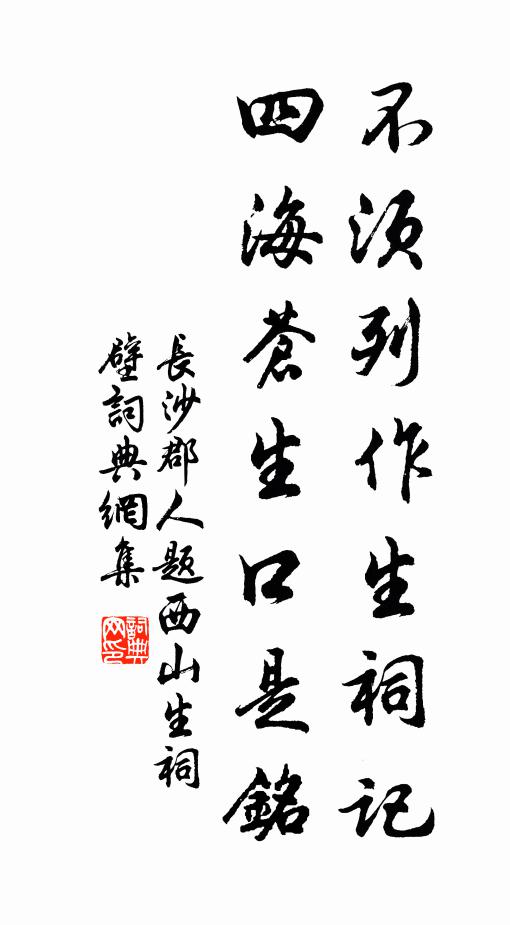 不須列作生祠記
四海蒼生口是銘
長沙郡人題西山生祠
壁詞典網集
詞典网印